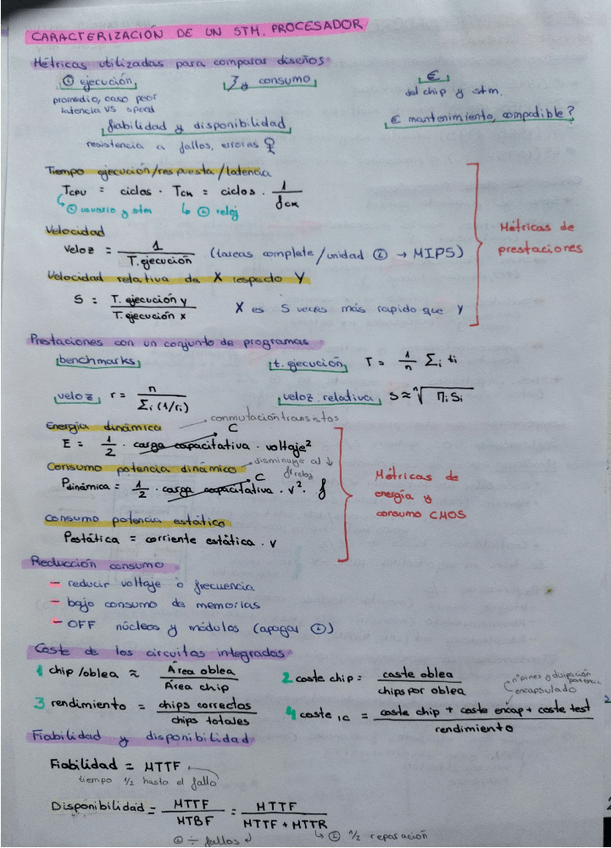 CARACTERIZACIÓN DE UN STM. PROCESADOR
Métricas utilizadas para comparar diseños
ejecución,
promedio, caso peor
latencia vs speed
y consumo
€
del chip y stm.
fiabilidad y disponibilidad
resistencia a fallos, errores
€ mantenimiento, compatible?
Tiempo ejecución/respuesta/latencia
TCPU = ciclos · TCK = ciclos · 1/fCK
usuario y stm
reloj
Velocidad
Veloz = 1/T.ejecución (tareas complete/unidad → MIPS)
Velocidad relativa de X respecto Y
S = T. ejecución y/T. ejecución x
X es S veces más rapido que Y
Métricas de
prestaciones
Prestaciones con un conjunto de programas
benchmarks
t. ejecución T = 1/n Σi ti
veloz r = n/Σi (1/ri)
veloz relativa S ≈ ⁿ√ Πi Si
Energía dinámica
conmutación transistos
E = 1/2 · carga capacitativa · voltaje² C
Consumo potencia dinámico
disminuye al ↓
f reloj
Pdinámica = 1/2 · carga capacitativa · v² · f C
Consumo potencia estático
Pestática = corriente estática · v
Métricas de
energía y
consumo CMOS
Reducción consumo
– reducir voltaje o frecuencia
– bajo consumo de memorias
– OFF núcleos y módulos (apagar)
Coste de los circuitos integrados
1 chip/oblea ≈ Área oblea/Área chip
2 coste chip = coste oblea/chips por oblea
3 rendimiento = chips correctos/chips totales
nº pines
encapsulado
4 coste IC = coste chip + coste encap + coste test/rendimiento
Fiabilidad y disponibilidad
Fiabilidad = MTTF
tiempo ½ hasta el fallo
Disponibilidad = MTTF/MTBF = MTTF/MTTF + MTTR
÷ fallos
½ reparación